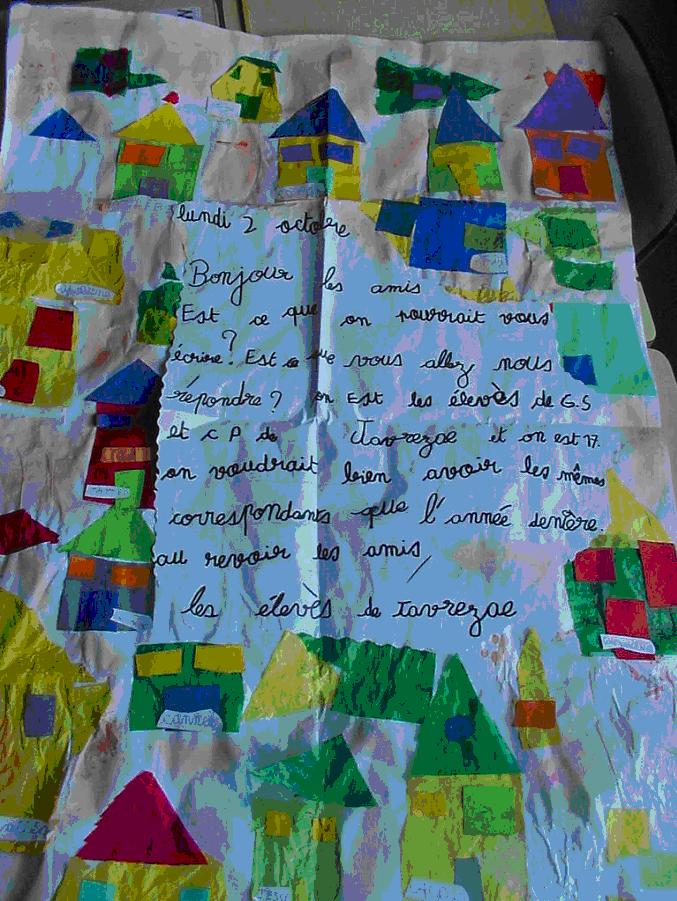 lundi 2 octobre
Bonjour les amis
Est ce que on pourrait vous
écrire? Est ce que vous allez nous
répondre? on Est les élevès de G.S
et C P de Tavrezac et on est 17.
on voudrait bien avoir les mêmes
correspondants que l'année denière.
au revoir les amis
les élevès de Tavrezac